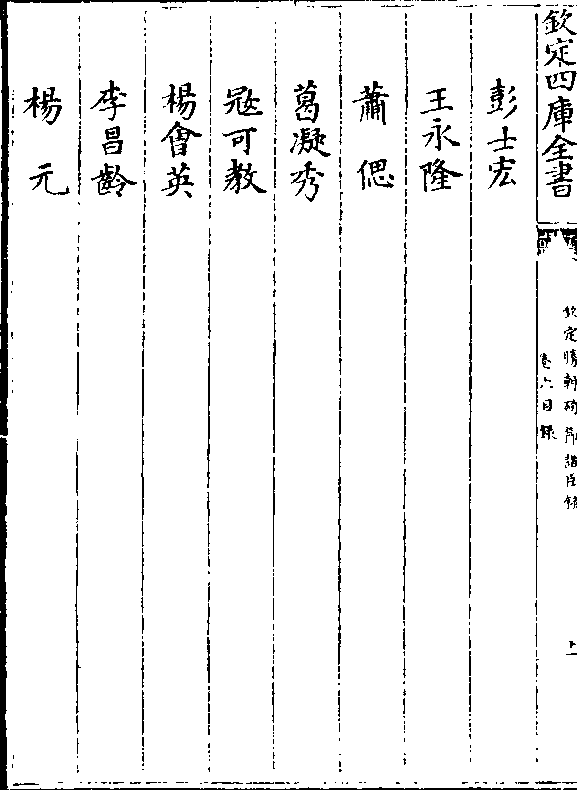 欽定四庫全書
欽定勝朝殉節諸臣錄
卷六目錄
彭士宏
王永隆
蕭偲
葛凝秀
冦可教
楊會英
李昌齡
楊元